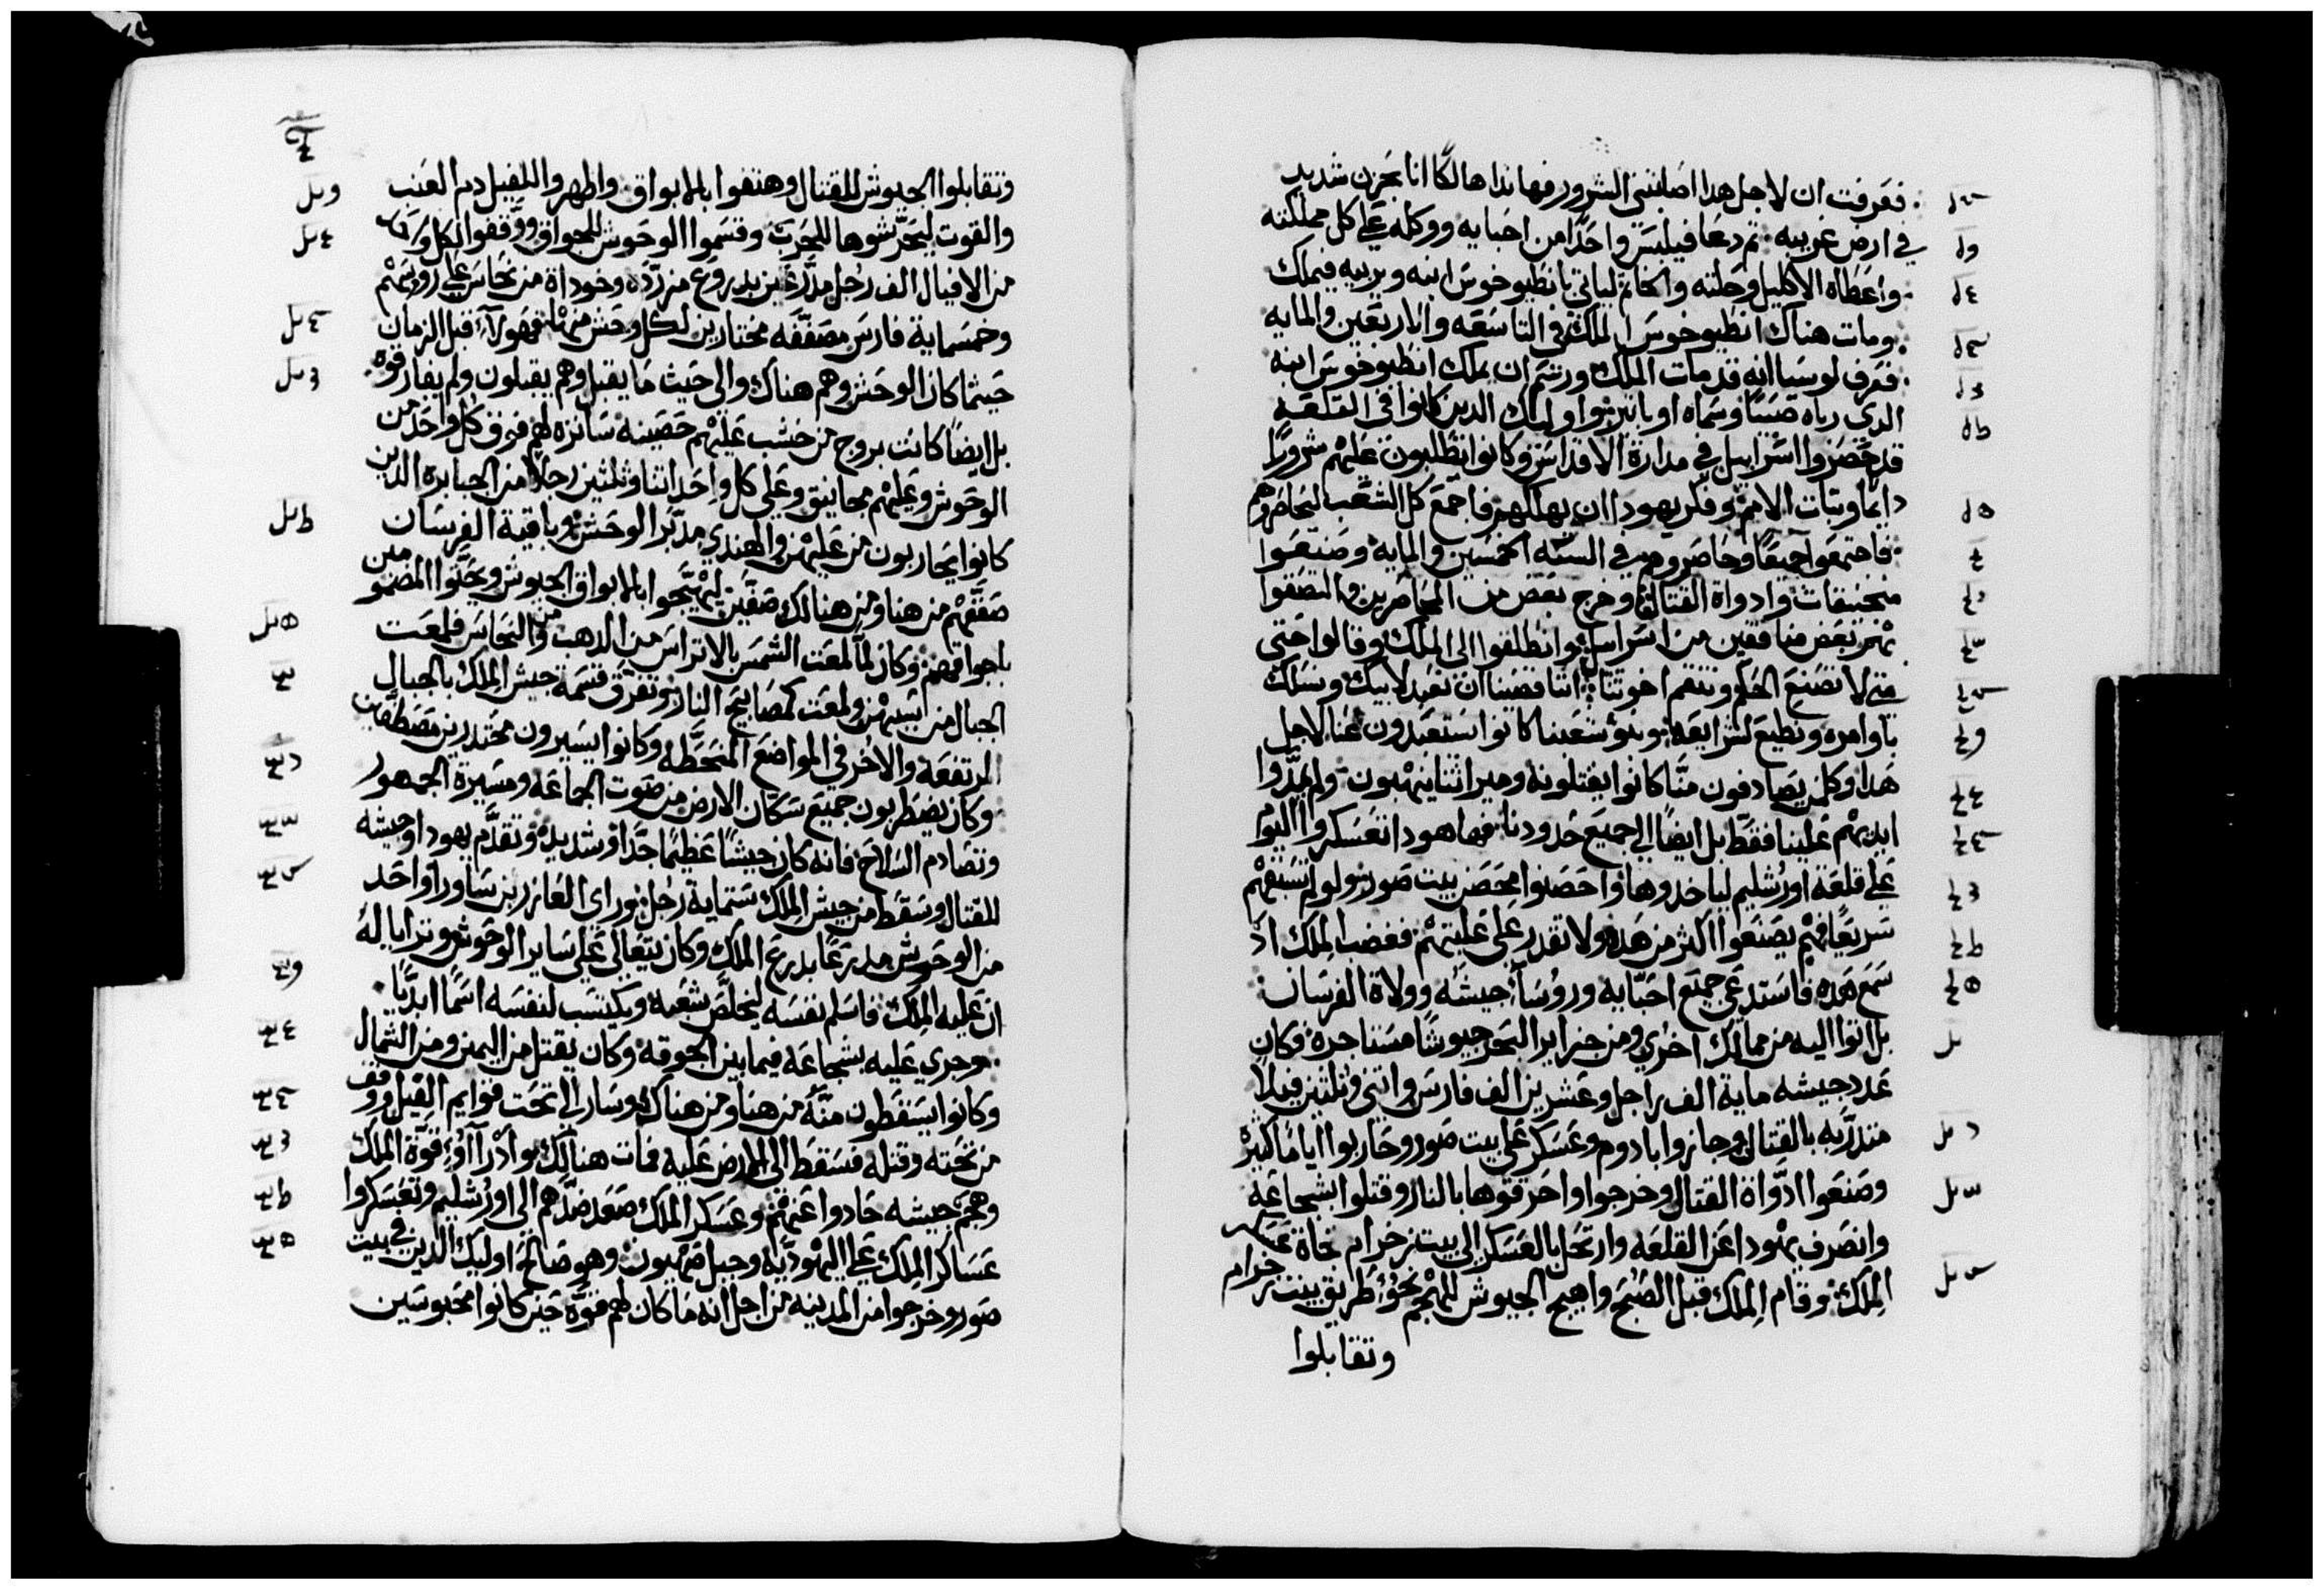 فعرفت ان لاجل هدا اصابتني الشرور فهاندا هالكًا انا بحزن شديد
في ارض غريبه ثم دعا فيلبس واحدًا من احبايه ووكله علي كل مملكته
واعطاه الاكليل وحلته والخاتم لياتي بانطيوخوس ابنه ويربيه فيملك
ومات هناك انطيوخوس الملك في التاسعه والاربعين والمايه
فعرف لوسيا انه قد مات الملك ورسم ان يملك انطيوخوس ابنه
الدي رباه صبيًا وسماه اوباتر واوليك الدين كانوا في القلعه
قد حصروا اسراييل في مدارة الاقداس وكانوا يطلبون عليهم شرورًا
دايما وثبات الامم وفكر يهودا ان يهلكهم فاجمع كل الشعب ليحاصروهم
فاجتمعوا جميعًا وحاصروهم في السنه الخمسين والمايه وصنعوا
منجنيقات وادواة القتال وخرج بعض من المحاصرين والتصقوا
بهم بعض منافقين من اسراييل وانطلقوا الى الملك وقالوا حتي
متي لا تصنع الحكم وتنتقم اخوتنا اننا قضينا ان نعبد لابيك ونسلك
باوامره ونطيع لشرايعه وبنو شعبنا كانوا استعبدون عنا لاجل
هدا وكلمن يصادفون منّا كانوا يقتلونه وميراثنا ينهبون ولم يمدّوا
ايديهم علينا فقط بل ايضًا الي جميع حدودنا فها هودا تعسكروا اليوم
على قلعة اورشليم لياخدوها واحصنوا محصن بيت صور ولو لم تسبقهم
سريعًا فهم يصنعوا اكثر من هده ولا تقدر علي غلبتهم فغضب الملك اد
سمع هده فاستدعي جميع احبّايه وروسآء جيشه وولاة الفرسان
بل اتوا اليه من ممالك اخري ومن جزاير البحر جيوشًا مستاجره وكان
عدد جيشه ماية الف راجل وعشرين الف فارس واتني وثلثين فيلًا
متدرّبه بالقتال وجازوا بادوم وعسكر علي بيت صور وحاربوا ايامًا كثيره
وصنعوا ادواة القتال وخرجوا واحرقوها بالنار وقتلوا بشجاعه
وانصرف يهودا عن القلعه وارتحل بالعسكر الى بيت زخرام تجاة عسكر
الملك وقام الملك قبل الصبح واهيج الجيوش للهجم نحو طريق بيت زخرام
وتقابلوا
وتقابلوا الجيوش للقتال وهتفوا بالابواق واظهروا للفيل دم العنب
والتوت ليحرّشوها للحرب وقسموا الوحوش للجواق ووقفوا لكل واحد
من الافيال الف رجل مدرّعين بدروع مزرّده وخوداة من نحاس علي روسهم
وخمسماية فارس مصفّفه مختارين لكل وحش منها فهولآء قبل الزمان
حيثما كان الوحش وهم هناك والى حيث ما يقبل وهم يقبلون ولم يفارقوه
بل ايضًا كانت بروج من خشب عليهم حصينه ساتره لهم فوق كل واحد من
الوحوش وعليهم مجانيق وعلي كل واحد اتنا وثلثين رجلًا من الجبابره الدين
كانوا يحاربون من عليهن والهندي مدبّر الوحش وباقية الفرسان
صففهم من هنا ومن هنالك صفّين ليهيّجوا بالابواق الجيوش ويحثّوا المضمومين
باجواقهم وكان لما لمعت الشمس بالاتراس من الدهب ومن النحاس فلمعت
الجبال من اسبهن ولمعت كمصابيح النار وتفرق قسمة جيش الملك بالجبال
المرتفعه والاخر في المواضع المنحطّه وكانوا يسيرون محتدرين مصطفّين
وكان يضطربون جميع سكان الارض من صوت الجماعه ومسيرة الجمهور
وتصادم السلاح فانه كان جيشًا عظيمًا جدًا وشديد وتقدّم يهودا وجيشه
للقتال وسقط من جيش الملك ستماية رجل وراى العازر بن ساورا واحد
من الوحوش مدرّعًا بدرع الملك وكان يتعالي علي ساير الوحوش وترايا له
ان عليه الملك فاسلم نفسه ليخلّص شعبه ويكتسب لنفسه اسمًا ابديًّا
وجري عليه بشجاعه فيما بين الجوقه وكان يقتل من اليمن ومن الشمال
وكانوا يسقطون منه من هنا ومن هناك وسار الى تحت قوايم الفيل ووقف
من تحته وقتله فسقط الى الارض عليه فمات هنالك وادرآآوا قوّة الملك
وهجم جيشه حادوا عنهم وعسكر الملك صعد ضدّهم الى اورشليم وتعسكروا
عساكر الملك علي اليهوديه وجبل صهيون وهو صالح اوليك الدين في بيت
صور وخرجوا من المدينه من اجل انه ما كان لهم قوّه حين كانوا محبوسين